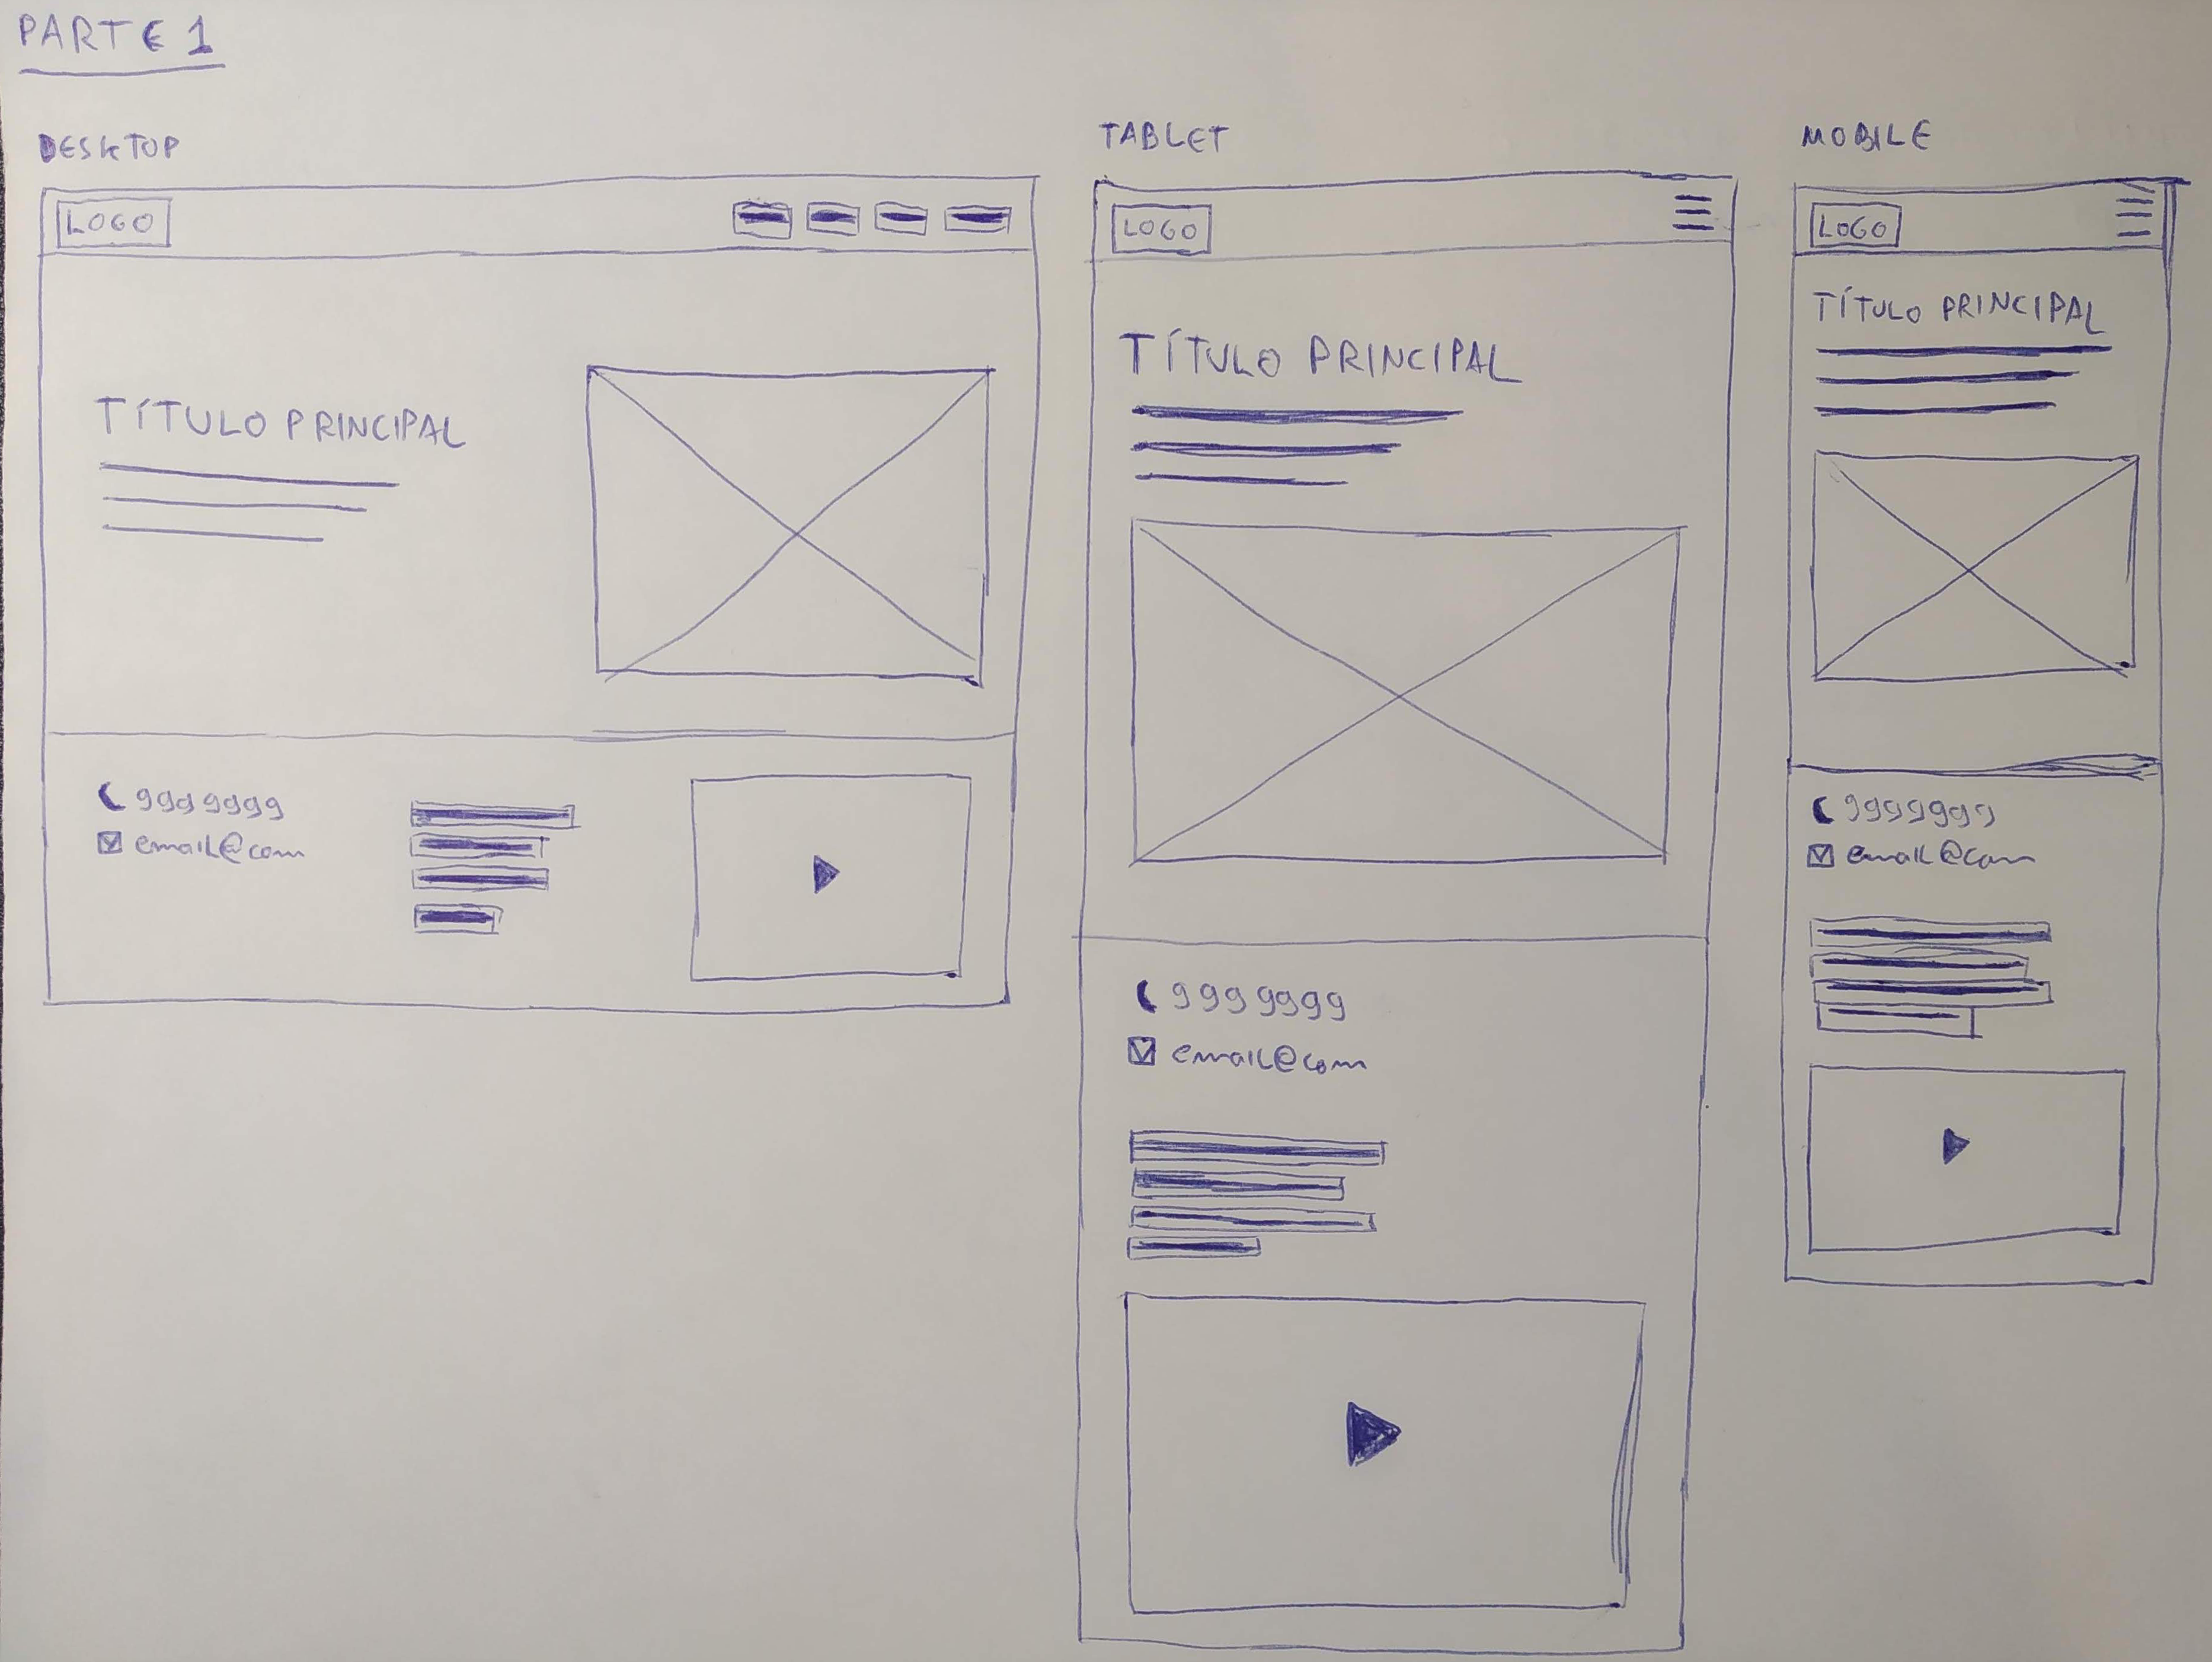 PARTE 1
DESKTOP
LOGO
TÍTULO PRINCIPAL
999 9999
email@com
TABLET
LOGO
TÍTULO PRINCIPAL
999 9999
email@com
MOBILE
LOGO
TÍTULO PRINCIPAL
9999999
email@com